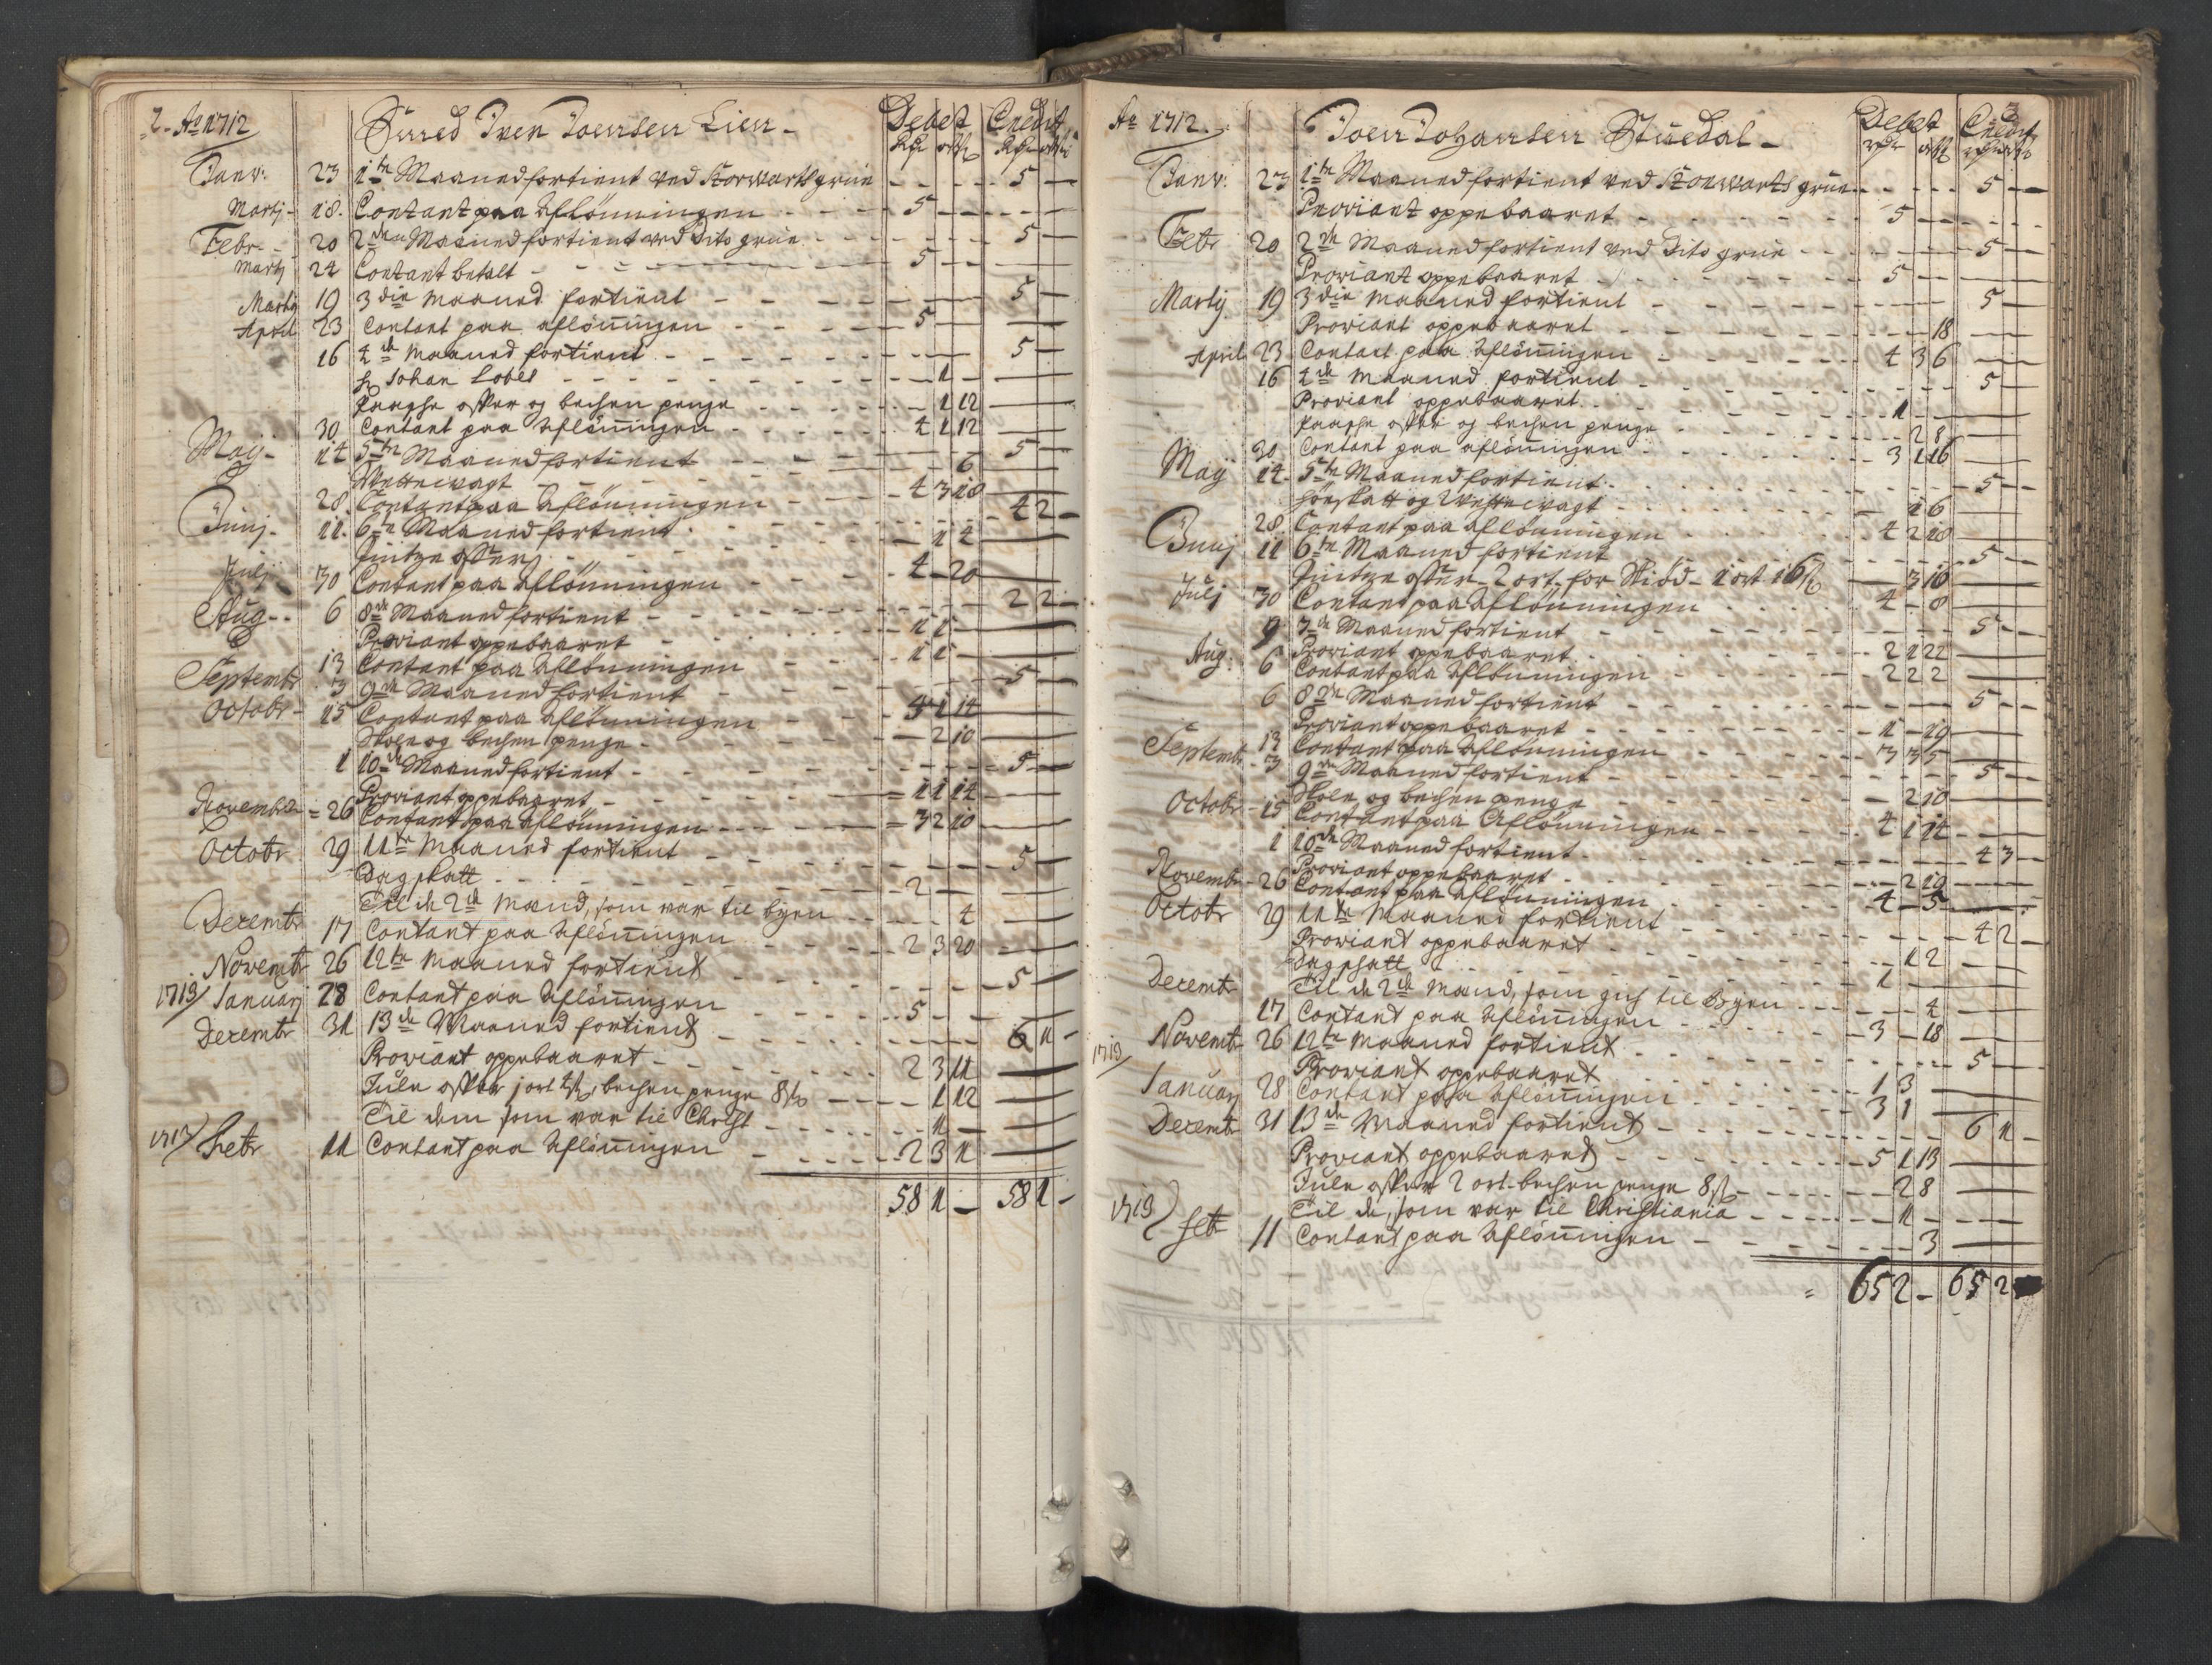 2. Ao 1712 Iver Joensen Lien Debet Credit
Janv: 23 1te Maaned fortient ved Storwarts grue 5 —
Martj 18. Contant paa Aflönningen 5 —
Febr. 20 2den Maaned fortient ved Dito grue 5 —
Martj 24 Contant betalt 5 —
Martij 19 3die Maaned fortient 5 —
April 23 Contant paa aflönningen 5 —
16 4de Maaned fortient 5 —
Johan Lobes 1 —
Paasche offer og bechen penge 1 12
30 Contant paa Aflönningen 4 1 12
Maij 14 5te Maaned fortient 5 —
Wettewagt 6
28. Contant paa Aflönningen 4 3 18
Junj. 11. 6te Maaned fortient 4 2 —
Pintze offer 1 4
Julj 30 Contant paa Aflönningen 4 — 20
Aug. 6 8de Maaned fortient 2 2 —
Proviant oppebaaret 1 1 —
13 Contant paa Aflönningen 1 1 —
Septembr 3 9de Maaned fortient 5 —
Octobr 15 Contant paa Aflönningen 4 1 14
Skole og bechen penge 2 10
1 10de Maaned fortient 5 —
Proviant oppebaaret 1 1 14
November 26 Contant paa Aflönningen 3 2 10
Octobr 29 11te Maaned fortient 5 —
Dagskatt 2 —
Til de 2de Mænd, som var til byen 4
Decembr 17 Contant paa Aflönningen 2 3 20
Novembr 26 12te Maaned fortient 5 —
1713 Januarj 28 Contant paa Aflönningen 5 —
Decembr 31 13de Maaned fortient 6 1 —
Proviant oppebaaret 2 3 11
Jule offer 1 ort 4 ß, bechen penge 8 ß 1 12
Til dem som var til Christ 1 —
1713 Febr 11 Contant paa Aflönningen 2 3 1
58 1 — 58 1 —
Ao 1712. Joen Johansen Stuedal Debet Credit 3
Janv: 23 1te Maaned fortient ved Storwarts grue 5 —
Proviant oppebaaret 5 —
Febr 20 2de Maaned fortient ved Dito grue 5 —
Proviant oppebaaret 5 —
Martij 19 3die Maaned fortient 5 —
Proviant oppebaaret 18
April 23 Contant paa Aflönningen 4 3 6
16 4de Maaned fortient 5 —
Proviant oppebaaret 1 —
Paasche offer og bechen penge 2 8
30 Contant paa aflönningen 3 1 16
Maij 14. 5te Maaned fortient 5 —
og Wettewagt 1 6
28. Contant paa aflönningen 4 2 18
Junj 11 6te Maaned fortient 5 —
Pintze offer 2 ort. for Skiöd 1 ort 16 ß 3 16
Julj 30 Contant paa Aflönningen 4 — 8
9 7de Maaned fortient 5 —
Proviant oppebaaret 2 1 22
Aug. 6 Contant paa Aflönningen 2 2 2
6 8de Maaned fortient 5 —
Proviant oppebaaret 1 — 19
Septembr 13 Contant paa Aflönningen 3 3 5
3 9de Maaned fortient 5 —
Skole og bechen penge 2 10
Octobr 15 Contant paa Aflönningen 4 1 14
1 10de Maaned fortient 4 3 —
Proviant oppebaaret 2 19
Novembr 26 Contant paa Aflönningen 4 — 5
Octobr 29 11te Maaned fortient 4 2 —
Proviant oppebaaret 1 2
Dagskatt 1 —
Decembr Til de 2de Mænd, som gik til Byen 4
17 Contant paa Aflönningen 3 — 18
Novembr 26 12te Maaned fortient 5 —
Proviant oppebaaret 1 3
1713 Januarj 28 Contant paa Aflönningen 3 1
Decembr 31 13de Maaned fortient 6 1 —
Proviant oppebaaret 5 1 13
Jule offer 2 ort. bechen penge 8 ß 2 8
Til de, som var til Christiania 1 —
1713 febr 11 Contant paa Aflönningen 3
65 2 — 65 2